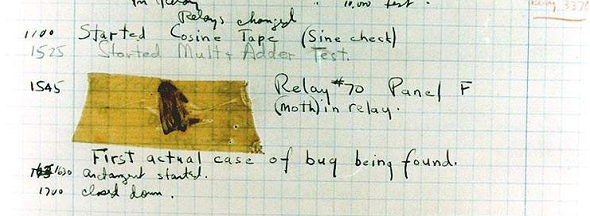 Relays changed
1100 Started Cosine Tape (Sine check)
1525 Started Mult + Adder Test.
1545 Relay #70 Panel F
(moth) in relay.
First actual case of bug being found.
1630 antangent started.
1700 closed down.